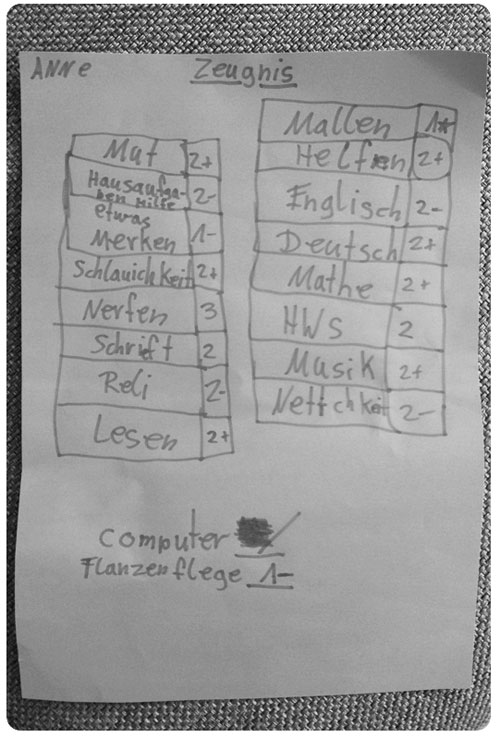 ANNe
Zeugnis
Mut 2+
Hausaufga-
ben Hilfe 2-
etwas
Merken 1-
Schlauichkeit 2+
Nerfen 3
Schrieft 2
Reli 2-
Lesen 2+
Mallen 1*
Helfen 2+
Englisch 2-
Deutsch 2+
Mathe 2+
HWS 2
Musik 2+
Nettchkeit 2-
Computer
Flanzenflege 1-